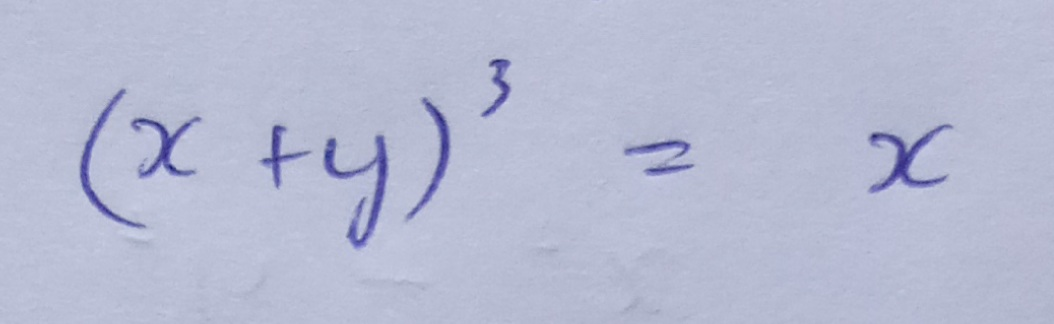 (x + y)³ = x